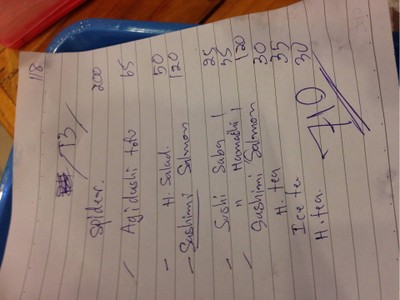 T3
Spider. 200
Agidushi tofu 65
H. Salad. 50
Sashimi Salmon 120
Sushi Saba 1 25
" Hamachi 1 35
Sashimi Salmon 120
H. tea 30
Ice te. 35
H. tea. 30
710